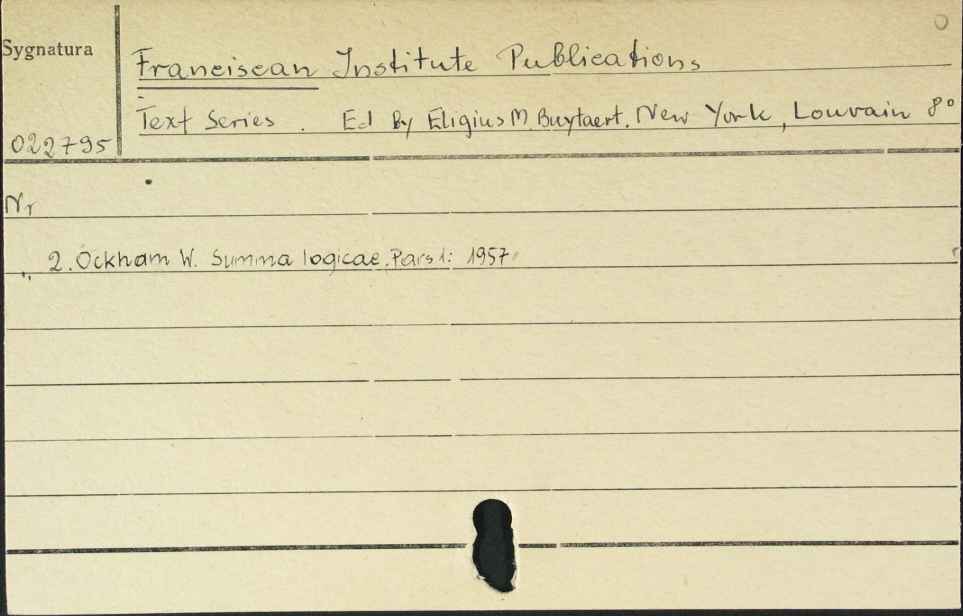 Sygnatura
Franciscan Institute Publications
Text Series. Ed By Eligius M. Buytaert. New York, Louvain 8°
022795
Nr
„ 2. Ockham W. Summa logicae. Pars 1: 1957